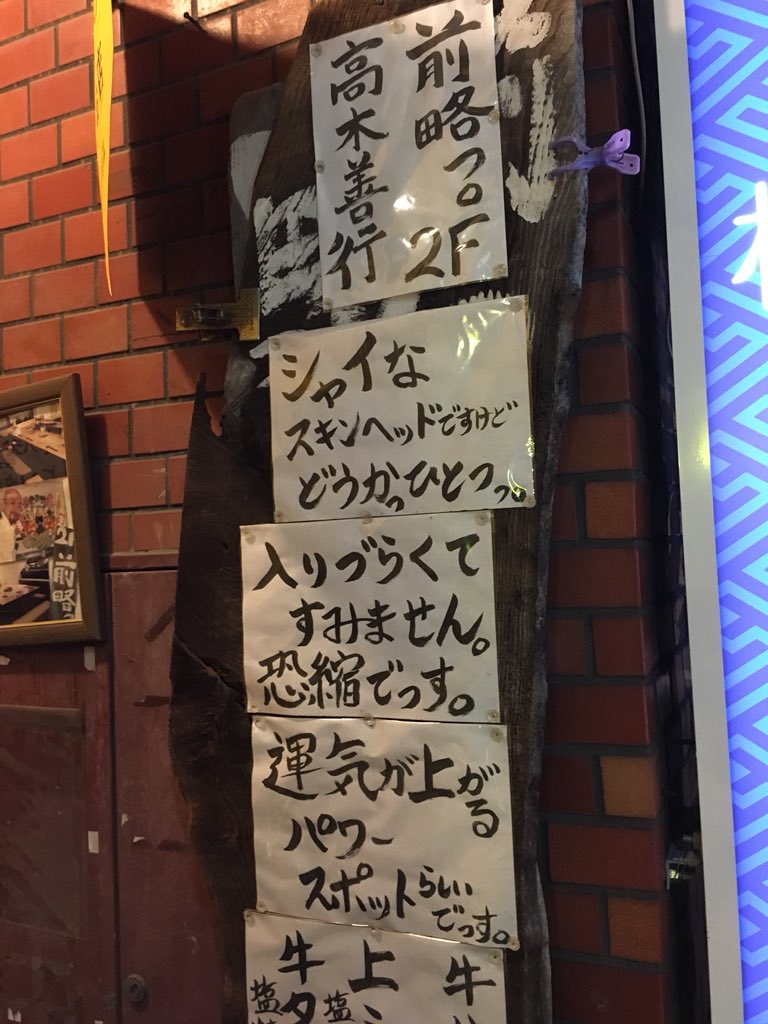 前略っ。2F
高木善行
シャイな
スキンヘッドですけど
どうかっひとつっ。
入りづらくて
すみません。
恐縮でっす。
運気が上がる
パワー
スポットらしい
でっす。
牛
上
牛タ
塩
塩
前略っ